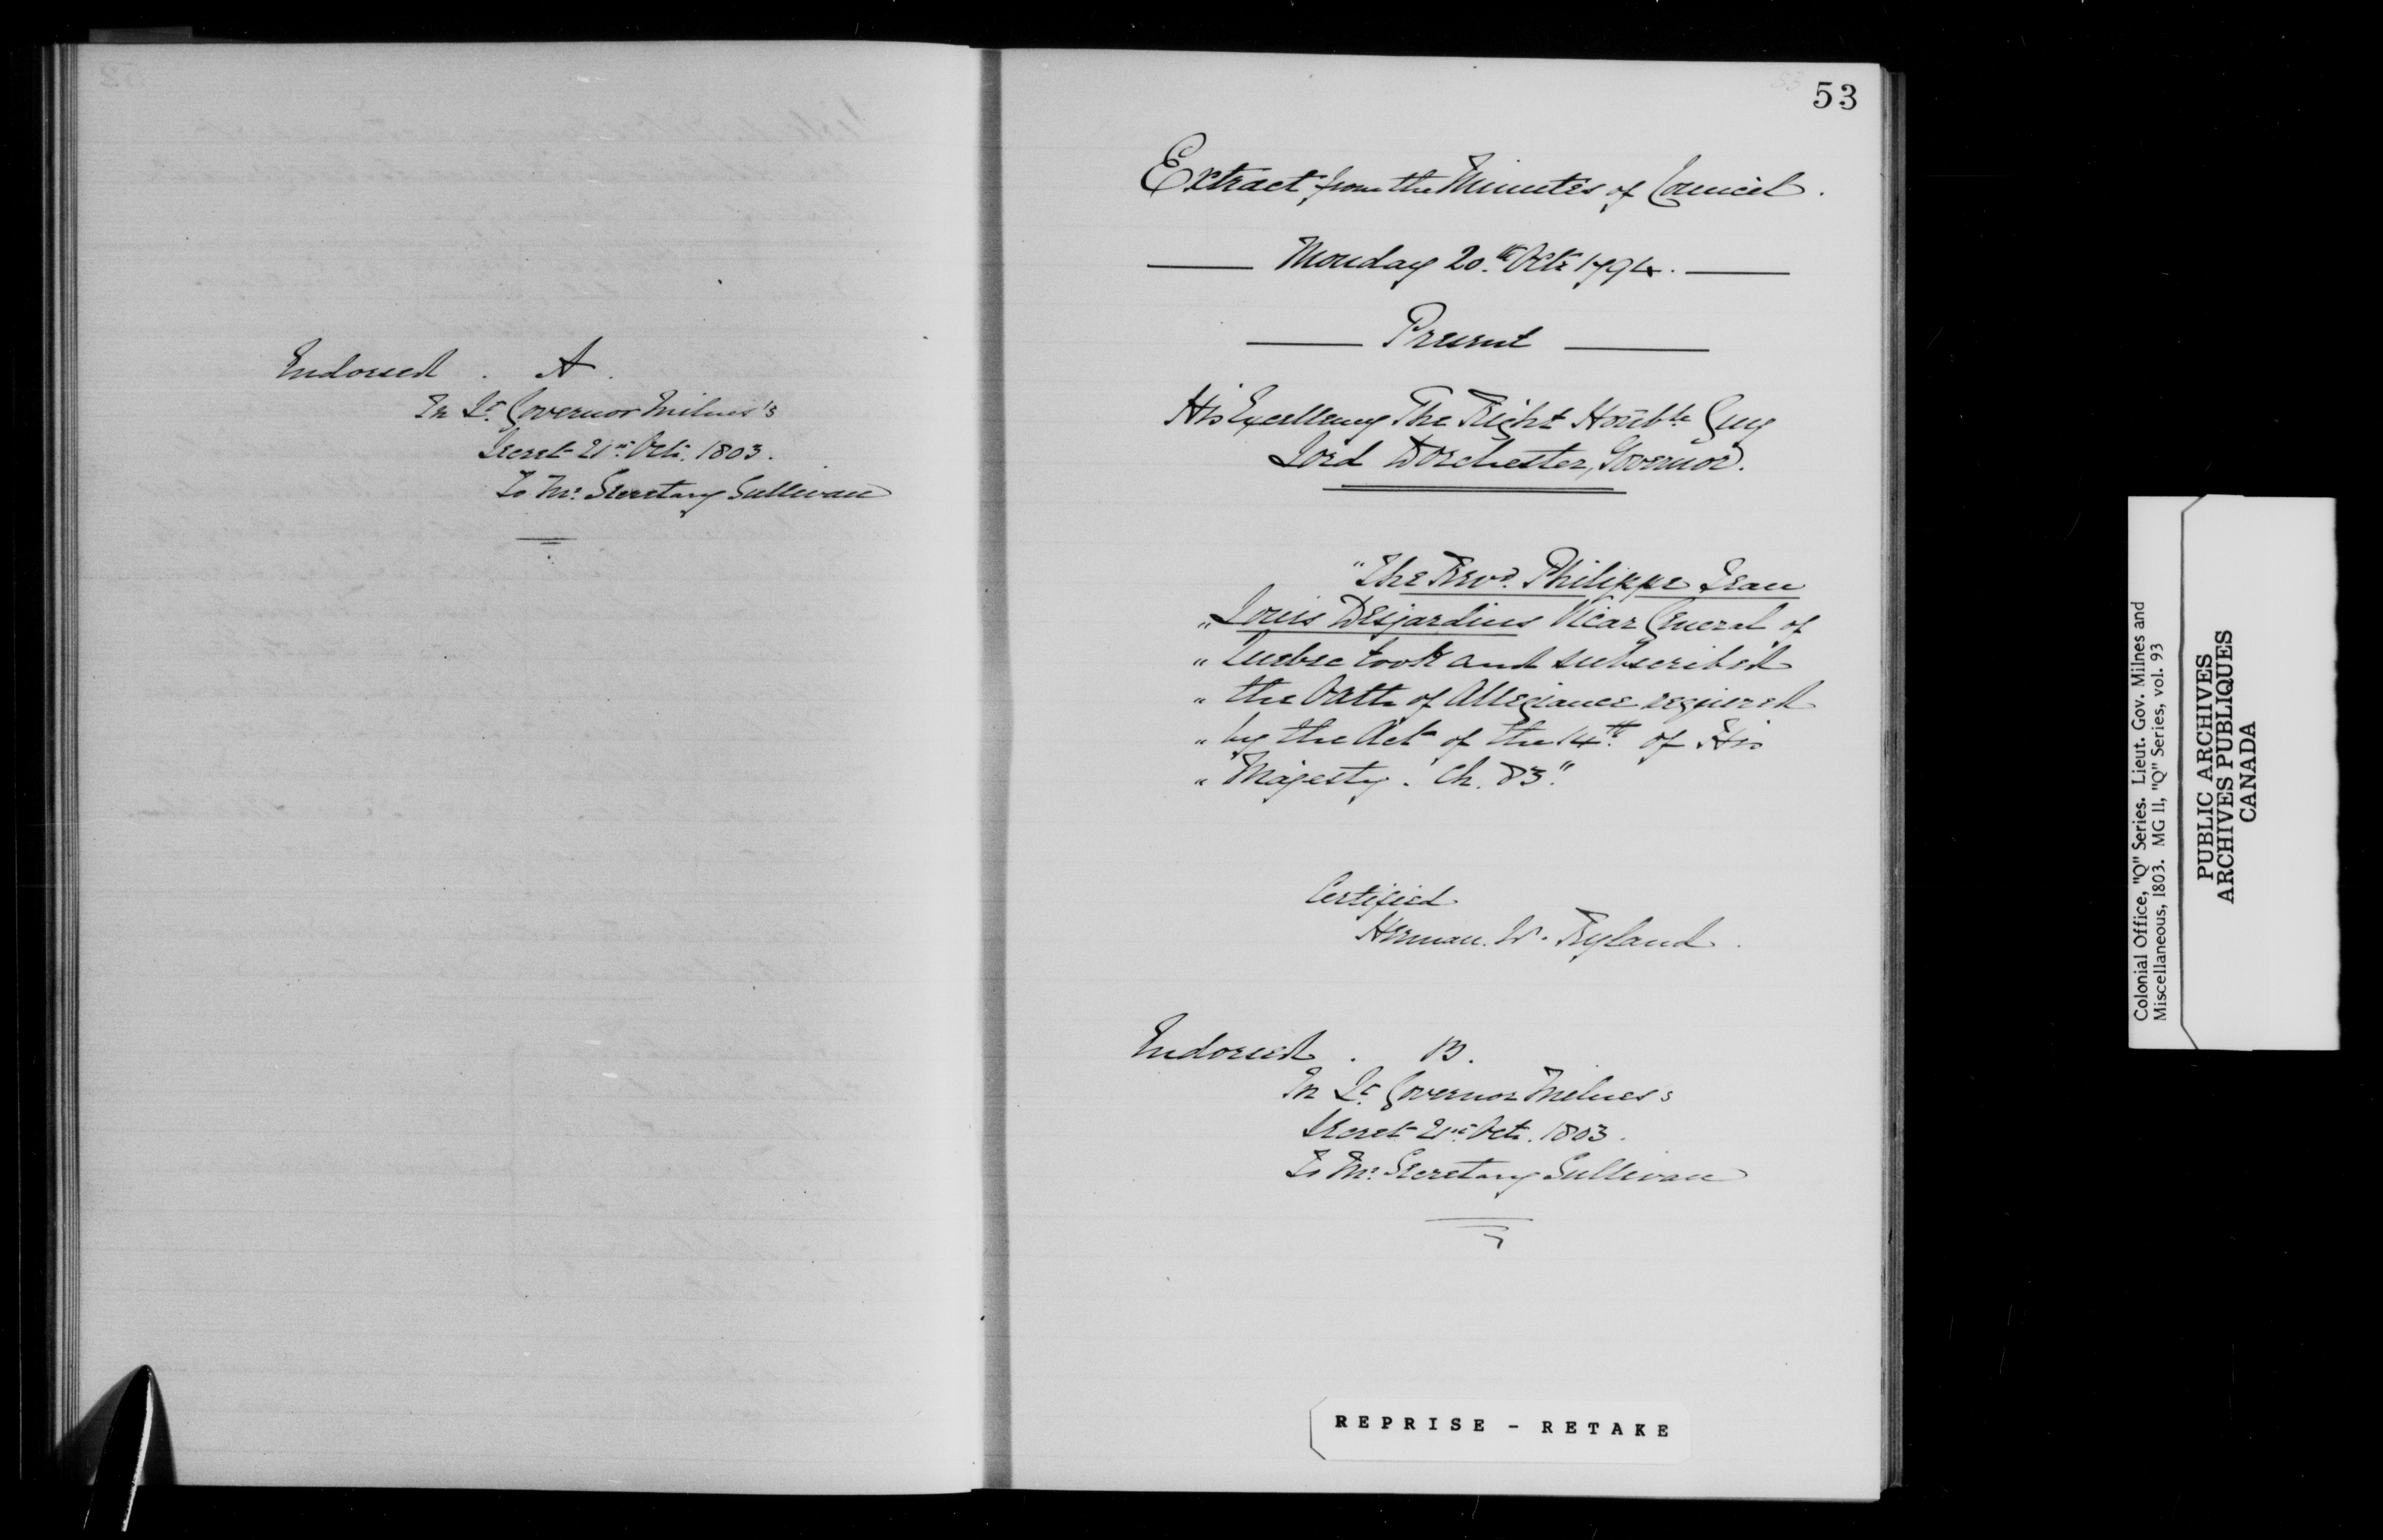 Endorsed . A.
In Lt. Governor Milnes's
Secret 21st Octr. 1803.
To Mr. Secretary Sullivan
53
Extract from the Minutes of Council.
Monday 20th Octr 1794.
Present
His Excellency The Right Honble Guy
Lord Dorchester, Governor.
"The Revd. Philippe Jean
" Louis Desjardins Vicar General of
" Quebec took and subscribed
" the Oath of Allegiance required
" by the Act of the 14th. of His
" Majesty. Ch. 83."
Certified
Herman. W. Ryland.
Endorsed . B.
In Lt. Governor Milnes's
Secret 21st Octr. 1803.
To Mr. Secretary Sullivan
REPRISE - RETAKE
Colonial Office, "Q" Series. Lieut. Gov. Milnes and
Miscellaneous, 1803. MG 11, "Q" Series, vol. 93
PUBLIC ARCHIVES
ARCHIVES PUBLIQUES
CANADA